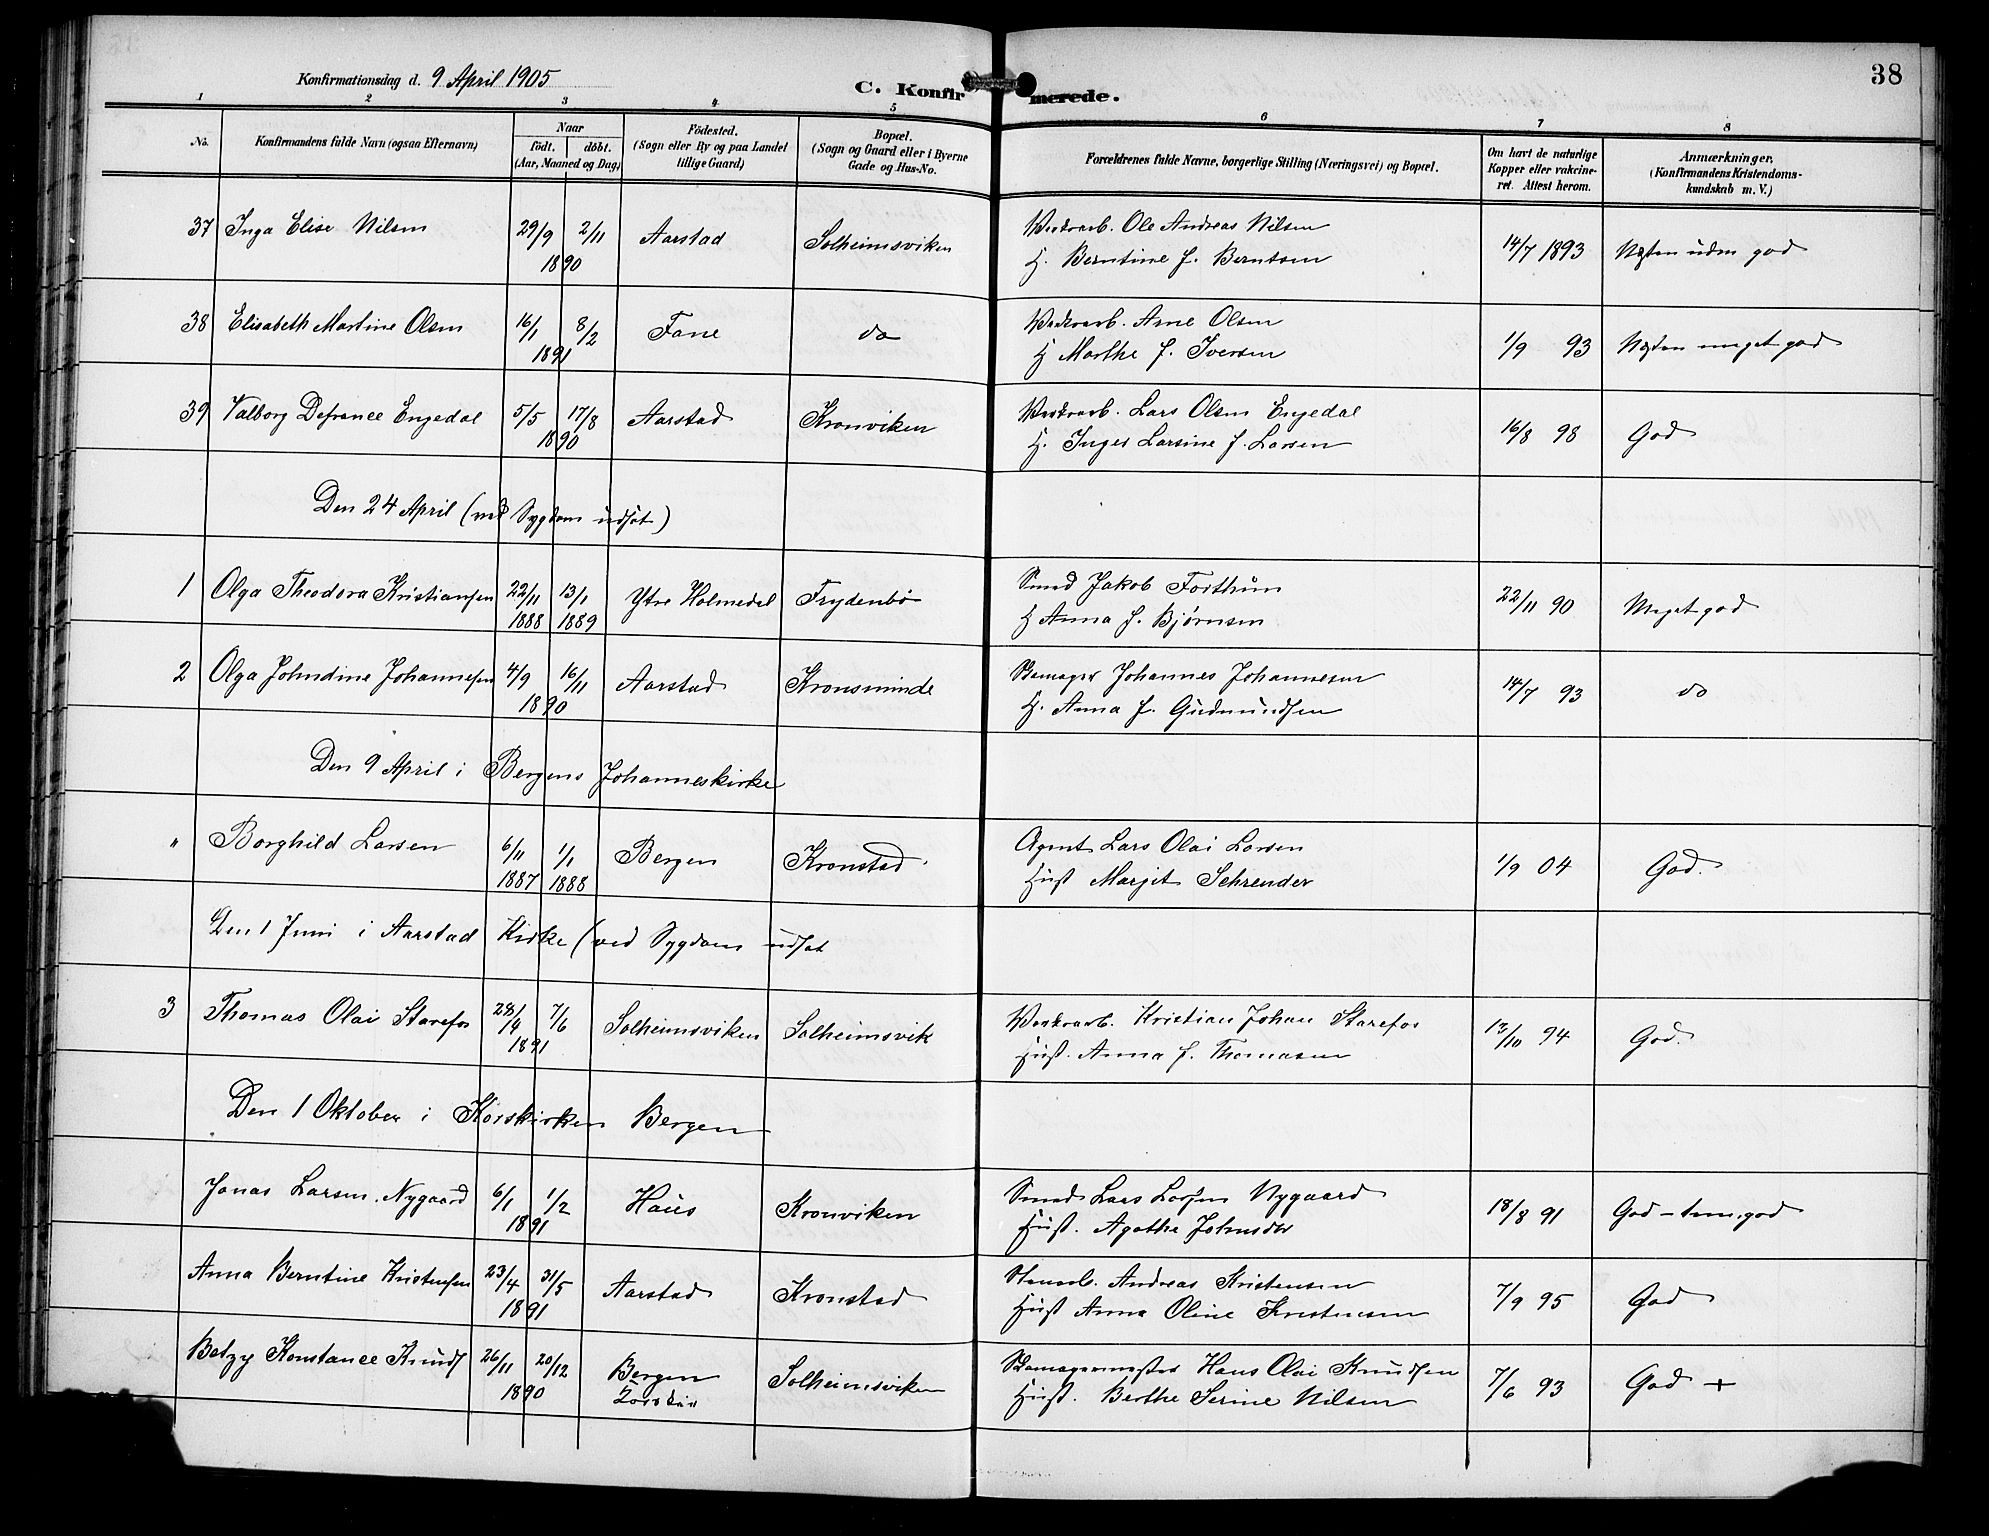 38
Konfirmationsdag d. 9 April 1905
C. Konfirmerede.
1 2 3 4 5 6 7 8
No. | Konfirmandens fulde Navn (ogsaa Efternavn) | Naar födt. döbt. (Aar, Maaned og Dag) | Födested. (Sogn eller By og paa Landet tillige Gaard) | Bopæl. (Sogn og Gaard eller i Byerne Gade og Hus-No. | Forældrenes fulde Navne, borgerlige Stilling (Næringsvei) og Bopæl. | Om havt de naturlige Kopper eller vakcineret. Attest herom. | Anmærkninger. (Konfirmandens Kristendomskundskab m. V.)
37 Inga Elise Nilsen 29/9 2/11 1890 Aarstad Solheimsviken Verkarb. Ole Andreas Nilsen 14/7 1893 Næsten uden god
H. Berntine f. Berntsen
38 Elisabeth Martine Olsen 16/1 8/2 1891 Fane do Verkarb. Arne Olsen 1/9 93 Næsten meget god
H Marthe f. Iversen
39 Valborg Defrance Engedal 5/5 17/8 1890 Aarstad Kronviken Verkarb. Lars Olsen Engedal 16/8 98 God
H. Inger Larsine f. Larsen
Den 24 April (ved Sygdom udsat)
1 Olga Theodora Kristiansen 22/11 1888 13/1 1889 Ytre Holmedal Frydenbö Smed Jakob Forthun 22/11 90 Meget god
H Anna f. Bjørnsen
2 Olga Johndine Johannesen 4/9 16/11 1890 Aarstad Kronsminde Skomager Johannes Johannesen 14/7 93 do
H. Anna f. Gudmundsen
Den 9 April i Bergens Johanneskirke
" Borghild Larsen 6/11 1887 1/1 1888 Bergen Kronstad Agent Lars Olai Larsen 1/9 04 God.
Hust Margit Schrender
Den 1 Juni i Aarstad Kirke (ved Sygdom udsat
3 Thomas Olai Starefos 28/4 7/6 1891 Solheimsviken Solheimsvik Verkarb. Kristian Johan Starefos 13/10 94 God.
Hust. Anna f. Thomasen
Den 1 Oktober i Korskirken Bergen
Jonas Larsen Nygaard 6/1 1/2 1891 Haus Kronviken Smed Lars Larsen Nygaard 18/8 91 God – tem. god
Hust. Agathe Johnsdtr
Anna Berntine Kristensen 23/4 31/5 1891 Aarstad Kronstad Stenarb. Andreas Kristensen 7/9 95 God
Hust Anna Oline Kristensen
Betzy Konstance Knuds 26/11 20/12 1890 Bergen Solheimsviken Skomagermester Hans Olai Knudsen 7/6 93 God +
Hust. Berthe Serine Nilsen